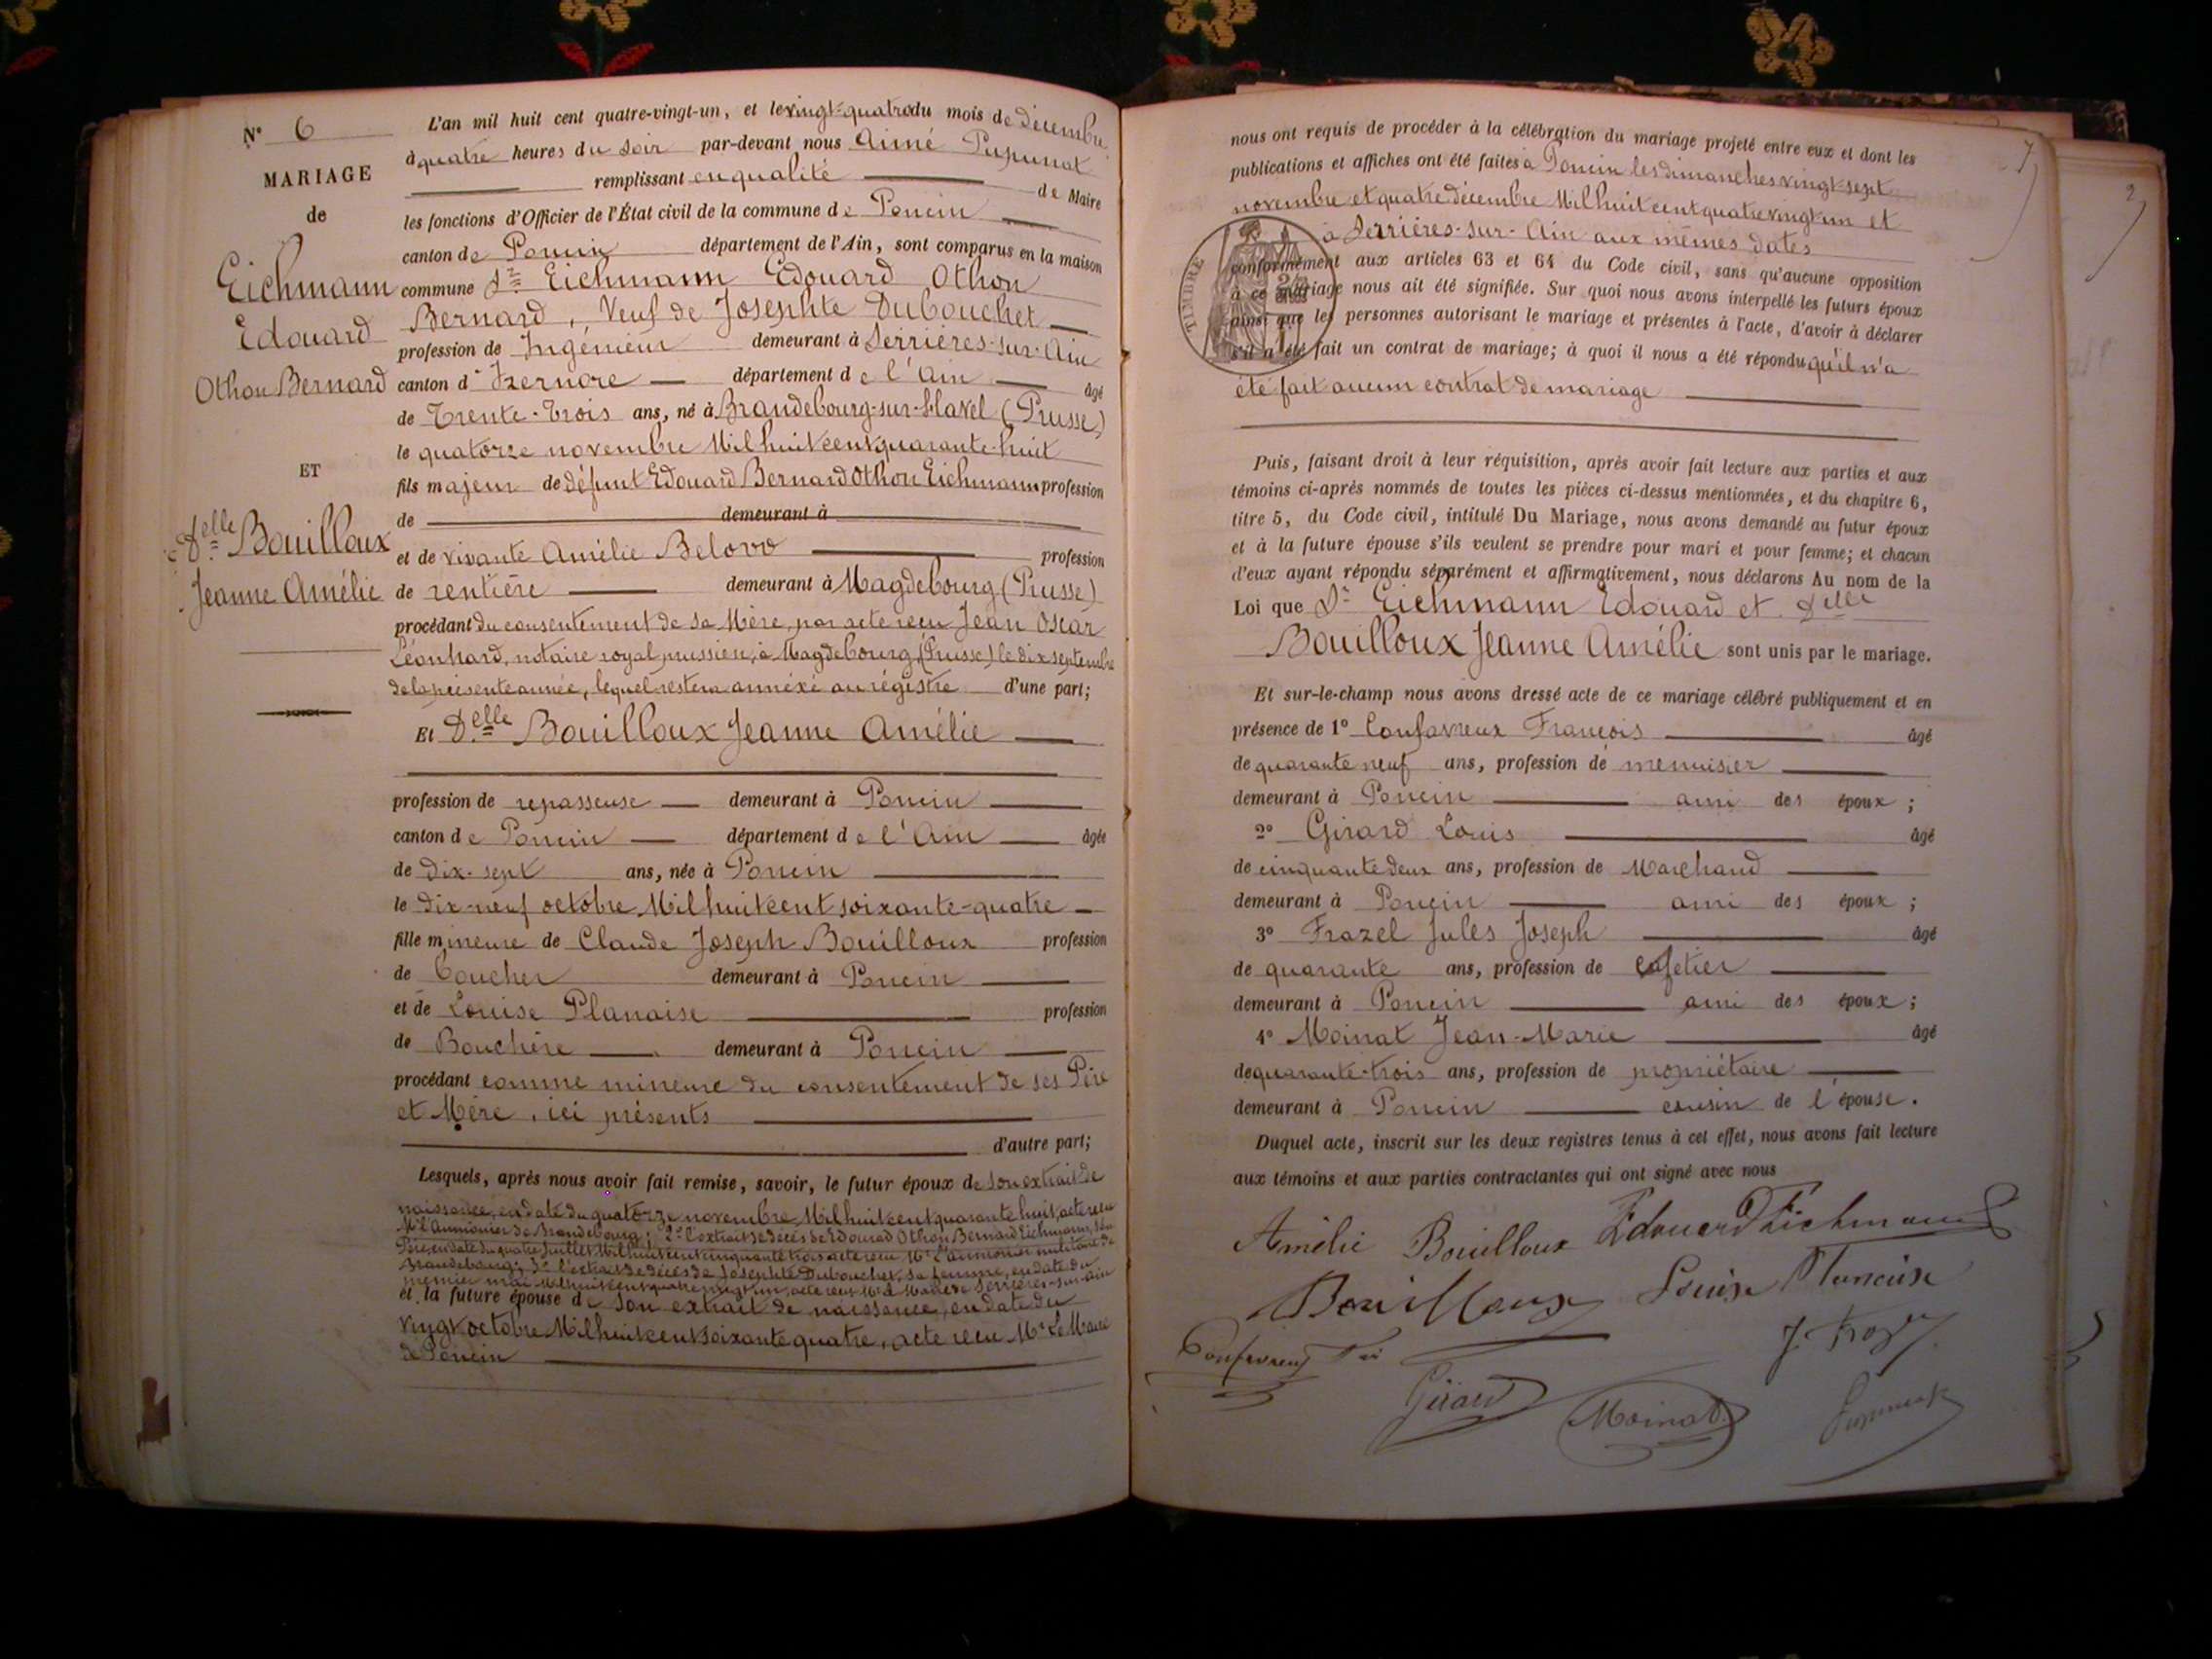 N° 6
MARIAGE
de
Eichmann
Edouard
Othon Bernard
ET
Delle Bouilloux
Jeanne Amélie
L'an mil huit cent quatre-vingt-un, et le vingt-quatre du mois de décembre
à quatre heures du soir par-devant nous Aimé Pupunat
remplissant en qualité de Maire
les fonctions d'Officier de l'État civil de la commune de Poncin
canton de Poncin département de l'Ain, sont comparus en la maison
commune Sr Eichmann Edouard Othon
Bernard, Veuf de Josephte Dubouchet
profession de Ingénieur demeurant à Serrières-sur-Ain
canton d'Izernore département de l'Ain âgé
de Trente-Trois ans, né à Brandebourg-sur-Havel (Prusse)
le quatorze novembre Mil huit cent quarante-huit
fils majeur de défunt Edouard Bernard Othon Eichmann profession
de demeurant à
et de vivante Amélie Belovo profession
de rentière demeurant à Magdebourg (Prusse)
procédant du consentement de sa Mère, par acte reçu Jean Oscar
Léonhard, notaire royal prussien, à Magdebourg (Prusse) le dix septembre
de la présente année, lequel restera annéxé au régistre d'une part;
Et Delle Bouilloux Jeanne Amélie
profession de repasseuse demeurant à Poncin
canton de Poncin département de l'Ain âgée
de Dix-sept ans, née à Poncin
le Dix-neuf octobre Mil huit cent soixante-quatre
fille mineure de Claude Joseph Bouilloux profession
de boucher demeurant à Poncin
et de Louise Planaise profession
de Bouchère demeurant à Poncin
procédant comme mineure du consentement de ses Père
et Mère, ici présents
d'autre part;
Lesquels, après nous avoir fait remise, savoir, le futur époux de son extrait de
naissance, en date du quatorze novembre Mil huit cent quarante huit, acte reçu
Mr l'Aumônier de Brandebourg; 2° l'extrait de décès de Edouard Othon Bernard Eichmann, son
Père, en date du quatre Juillet Mil huit cent cinquante trois acte reçu Mr l'aumônier militaire de
Brandebourg; 3° l'extrait de décès de Josephte Dubouchet, sa femme, en date du
premier mai Mil huit cent quatre vingt un, acte reçu Mr le Maire de Serrières-sur-Ain
et la future épouse de son extrait de naissance, en date du
vingt octobre Mil huit cent soixante quatre, acte reçu Mr Le Maire
de Poncin
7
nous ont requis de procéder à la célébration du mariage projeté entre eux et dont les
publications et affiches ont été faites à Poncin les dimanches vingt-sept
novembre et quatre décembre Mil huit cent quatre vingt un et
à Serrières-sur-Ain aux mêmes dates
TIMBRE
conformément aux articles 63 et 64 du Code civil, sans qu'aucune opposition
à ce mariage nous ait été signifiée. Sur quoi nous avons interpellé les futurs époux
ainsi que les personnes autorisant le mariage et présentes à l'acte, d'avoir à déclarer
s'il a été fait un contrat de mariage; à quoi il nous a été répondu qu'il n'a
été fait aucun contrat de mariage
Puis, faisant droit à leur réquisition, après avoir fait lecture aux parties et aux
témoins ci-après nommés de toutes les pièces ci-dessus mentionnées, et du chapitre 6,
titre 5, du Code civil, intitulé Du Mariage, nous avons demandé au futur époux
et à la future épouse s'ils veulent se prendre pour mari et pour femme; et chacun
d'eux ayant répondu séparément et affirmativement, nous déclarons Au nom de la
Loi que Sr Eichmann Edouard et Delle
Bouilloux Jeanne Amélie sont unis par le mariage.
Et sur-le-champ nous avons dressé acte de ce mariage célébré publiquement et en
présence de 1° Confavreux François âgé
de quarante neuf ans, profession de menuisier
demeurant à Poncin ami des époux;
2° Girard Louis âgé
de cinquante deux ans, profession de Marchand
demeurant à Poncin ami des époux;
3° Frazel Jules Joseph âgé
de quarante ans, profession de cafetier
demeurant à Poncin ami des époux;
4° Moinat Jean-Marie âgé
de quarante-trois ans, profession de propriétaire
demeurant à Poncin cousin de l'épouse.
Duquel acte, inscrit sur les deux registres tenus à cet effet, nous avons fait lecture
aux témoins et aux parties contractantes qui ont signé avec nous
Amélie Bouilloux Edouard Eichmann
Bouilloux Louise Planaise
Confavreux J. Frazel
Girard Moinat Pupunat
2